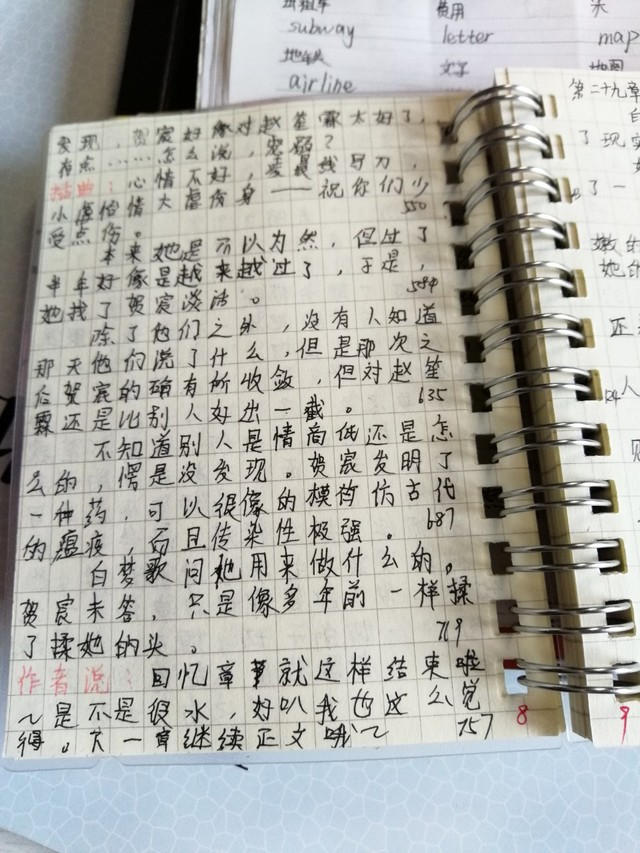 subway
费用
letter
map
地铁
文字
地图
airline
发现，贺宸好像对赵笙霖太好了，
有点……怎么说，宠溺？
插曲：心情不好，
小虐怡情大虐伤身——祝你们少
受点伤。
550
本来她是不以为然，但过了
半年好像是越来越过了，于是，
584
她找了贺宸淡话。
除了他们之外，没有人知道
那天他们说了什么，但是那次之
后贺宸的确有所收敛，但对赵笙
635
霖还是比别人好出一截。
不知道别人是情商低还是怎
么的，愣是没发现。贺宸发明了
一种药，可以很像的模构仿古代
687
的瘟疫，而且传染性极强。
白梦歌问她用来做什么的。
贺宸未答，只是像多年前一样揉
了揉她的头。
719
作者说：回忆章就这样结束啦
～是不是很水，好叭我也这么觉
得。下一章继续正文哦～
757
8
第二十九章
了现实
了一
嫩的
她的
还
人
9